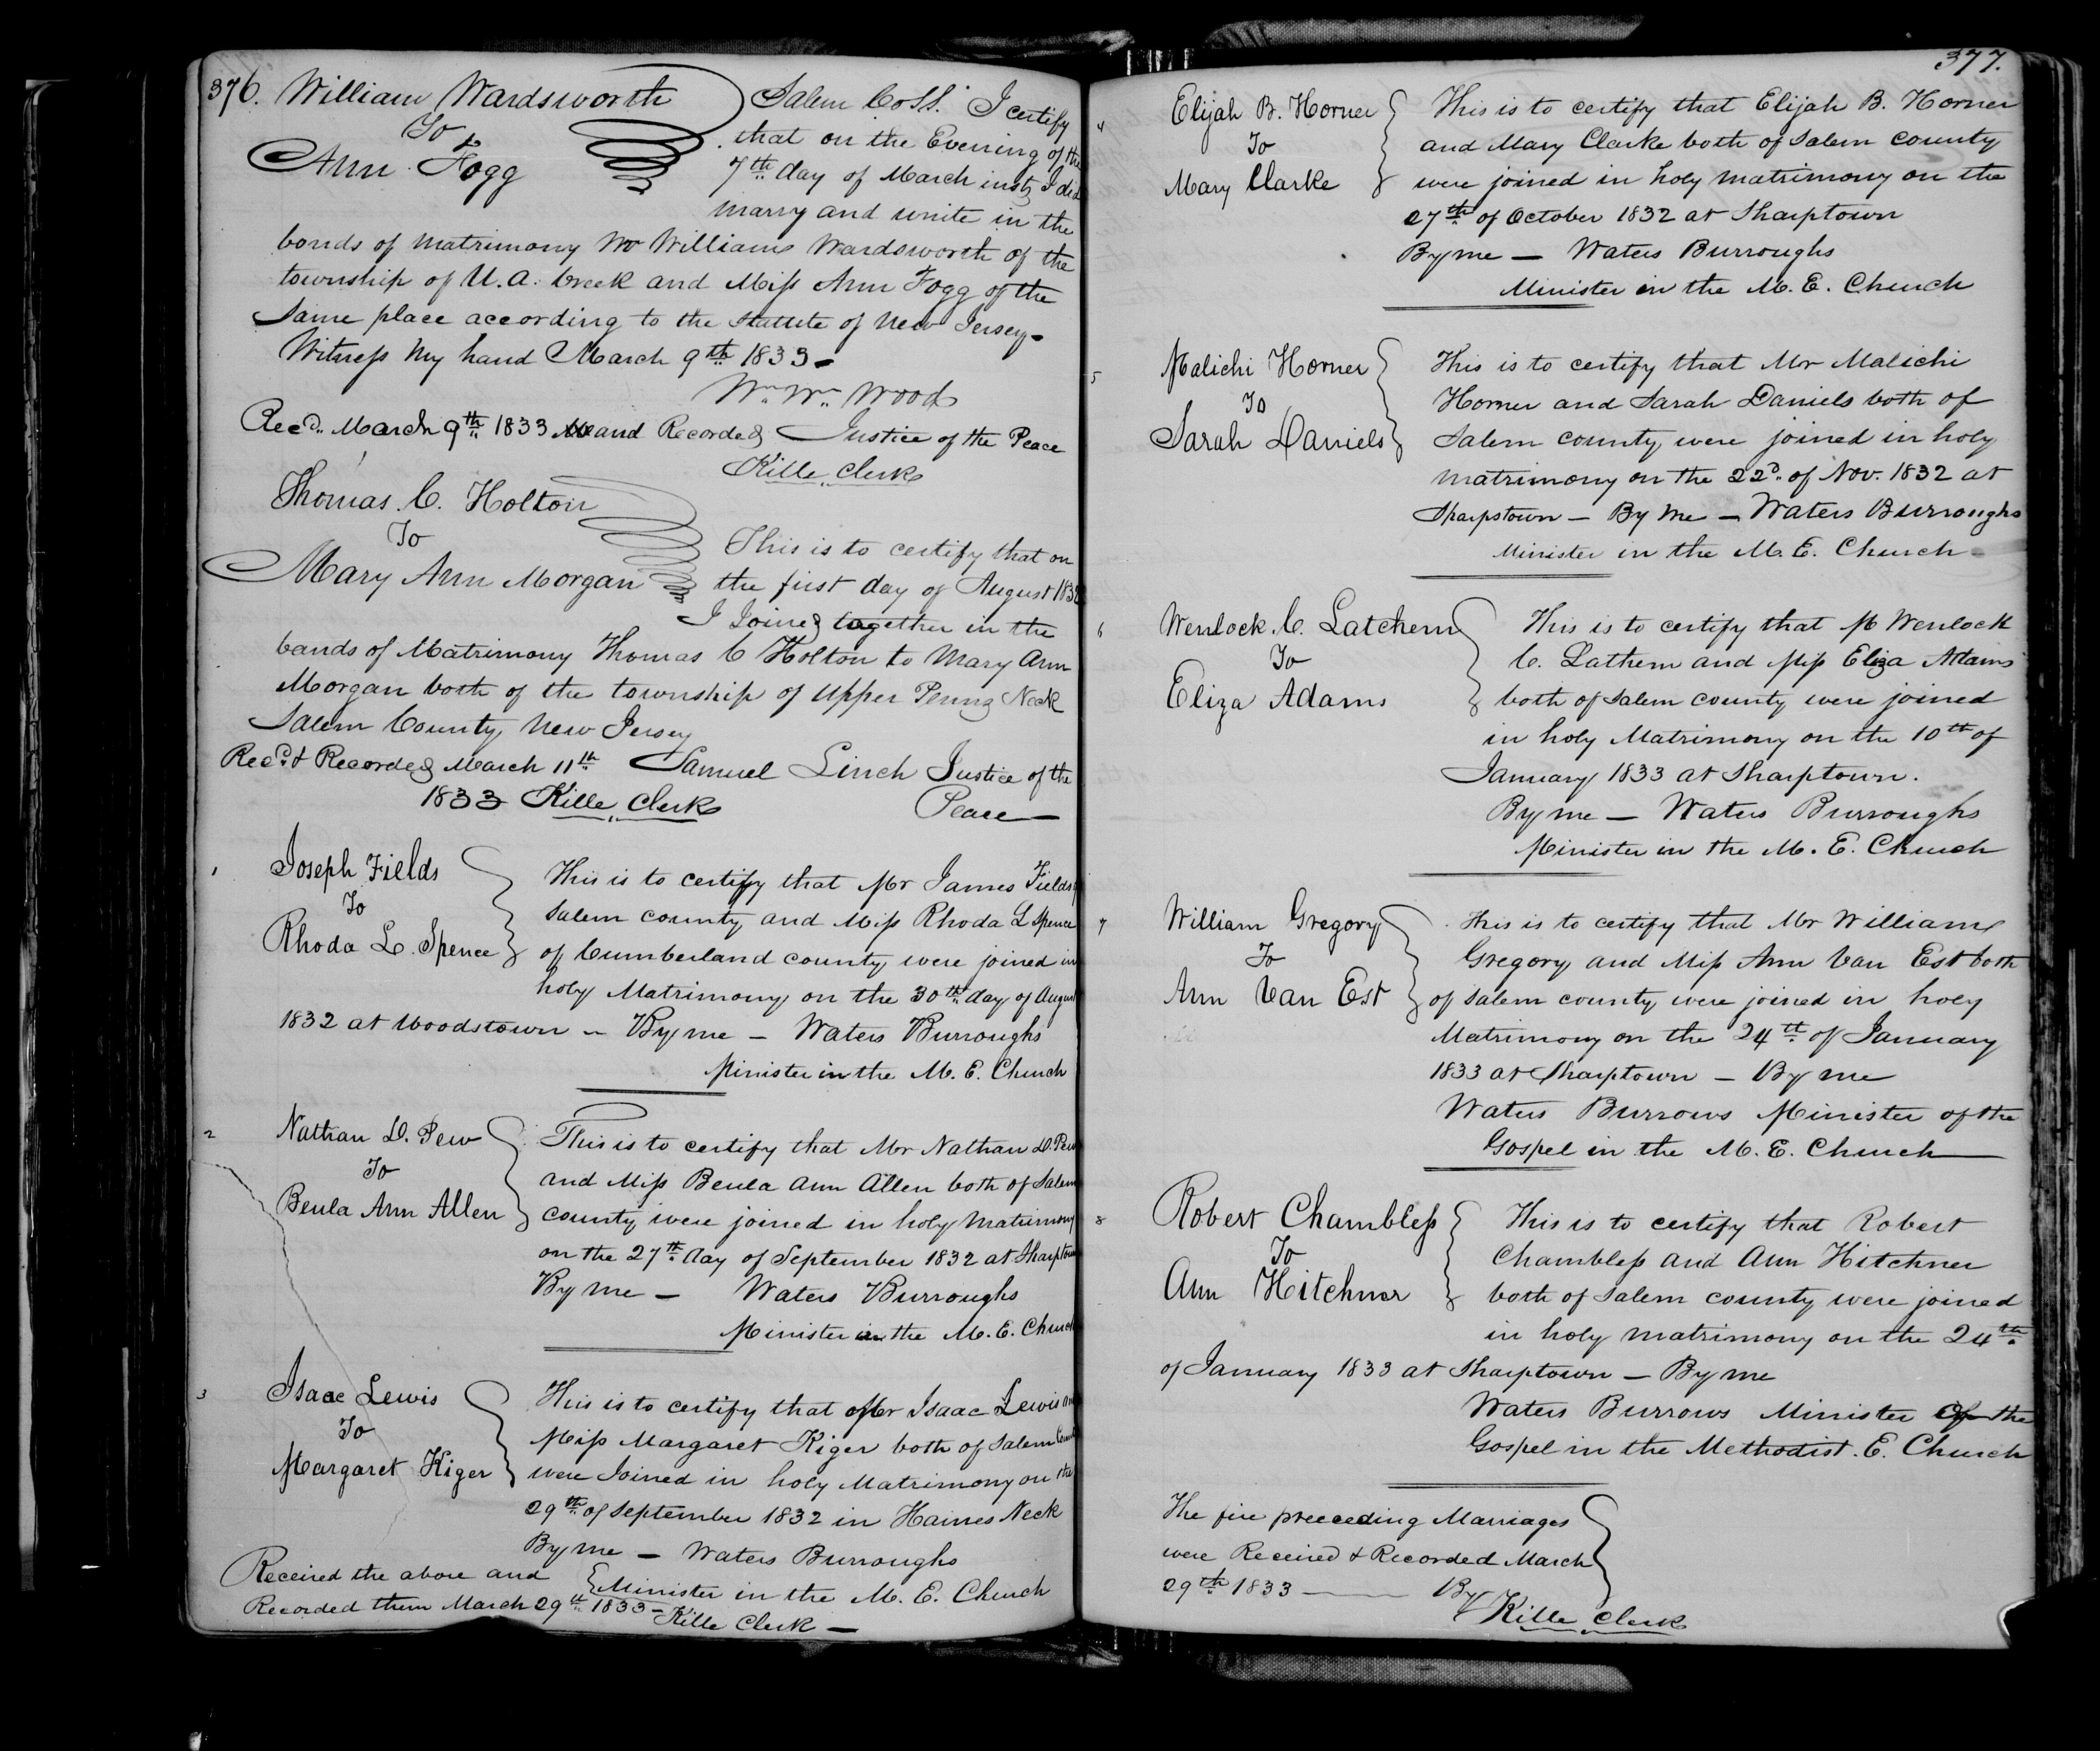 376.
William Wardsworth
To
Ann Fogg
Salem Co SS. I certify
that on the Evening of the
7th day of March inst, I did
marry and unite in the
bonds of matrimony Mr William Wardsworth of the
township of U. A. Creek and Miss Ann Fogg of the
Same place according to the Statute of New Jersey-
Witness my hand March 9th 1833-
Wm. Wm. Wood
Justice of the Peace
Recd. March 9th 1833 and Recorded
Kille, Clerk
Thomas. C. Holton
To
Mary Ann Morgan
This is to certify that on
the first day of August 1832
I Joined together in the
bands of Matrimony Thomas C Holton to Mary Ann
Morgan both of the township of Upper Penns Neck
Salem County New Jersey
Recd. & Recorded March 11th
1833 Kille, Clerk
Samuel Linch Justice of the
Peace —
1
Joseph Fields
To
Rhoda L. Spence
This is to certify that Mr James Fields of
Salem county and Miss Rhoda L Spence
of Cumberland county were joined in
holy Matrimony on the 30th day of August
1832 at Woodstown - By me - Waters Burroughs
Minister in the M. E. Church
2
Nathan D. Pew
To
Beula Ann Allen
This is to certify that Mr Nathan D. Pew
and Miss Beula Ann Allen both of Salem
county were joined in holy matrimony
on the 27th day of September 1832 at Sharptown
By me - Waters Burroughs
Minister in the M. E. Church
3
Isaac Lewis
To
Margaret Kiger
This is to certify that Mr Isaac Lewis and
Miss Margaret Kiger both of Salem County
were Joined in holy Matrimony on the
29th of September 1832 in Haines Neck
By me - Waters Burroughs
Minister in the M. E. Church
Received the above and
Recorded them March 29th 1833- Kille Clerk -
377.
4
Elijah B. Horner
To
Mary Clarke
This is to certify that Elijah B. Horner
and Mary Clarke both of Salem county
were joined in holy matrimony on the
27th of October 1832 at Sharptown
By me - Waters Burroughs
Minister in the M. E. Church
5
Malichi Horner
To
Sarah Daniels
This is to certify that Mr Malichi
Horner and Sarah Daniels both of
Salem county were joined in holy
matrimony on the 22d. of Nov. 1832 at
Sharpstown - By me - Waters Burroughs
Minister in the M. E. Church -
6
Wenlock. C. Latchem
To
Eliza Adams
This is to certify that M Wenlock
C. Lathem and Miss Eliza Adams
both of Salem county were joined
in holy Matrimony on the 10th of
January 1833 at Sharptown.
By me - Waters Burroughs
Minister in the M. E. Church
7
William Gregory
To
Ann Van Est
This is to certify that Mr William
Gregory and Miss Ann Van Est both
of Salem county were joined in holy
Matrimony on the 24th of January
1833 at Sharptown - By me
Waters Burrows Minister of the
Gospel in the M. E. Church
8
Robert Chambless
To
Ann Hitchner
This is to certify that Robert
Chambless and Ann Hitchner
both of Salem county were joined
in holy matrimony on the 24th
of January 1833 at Sharptown - By me
Waters Burrows Minister of the
Gospel in the Methodist. E. Church
The five preceeding Marriages
were Received & Recorded March
29th 1833 - By
Kille Clerk